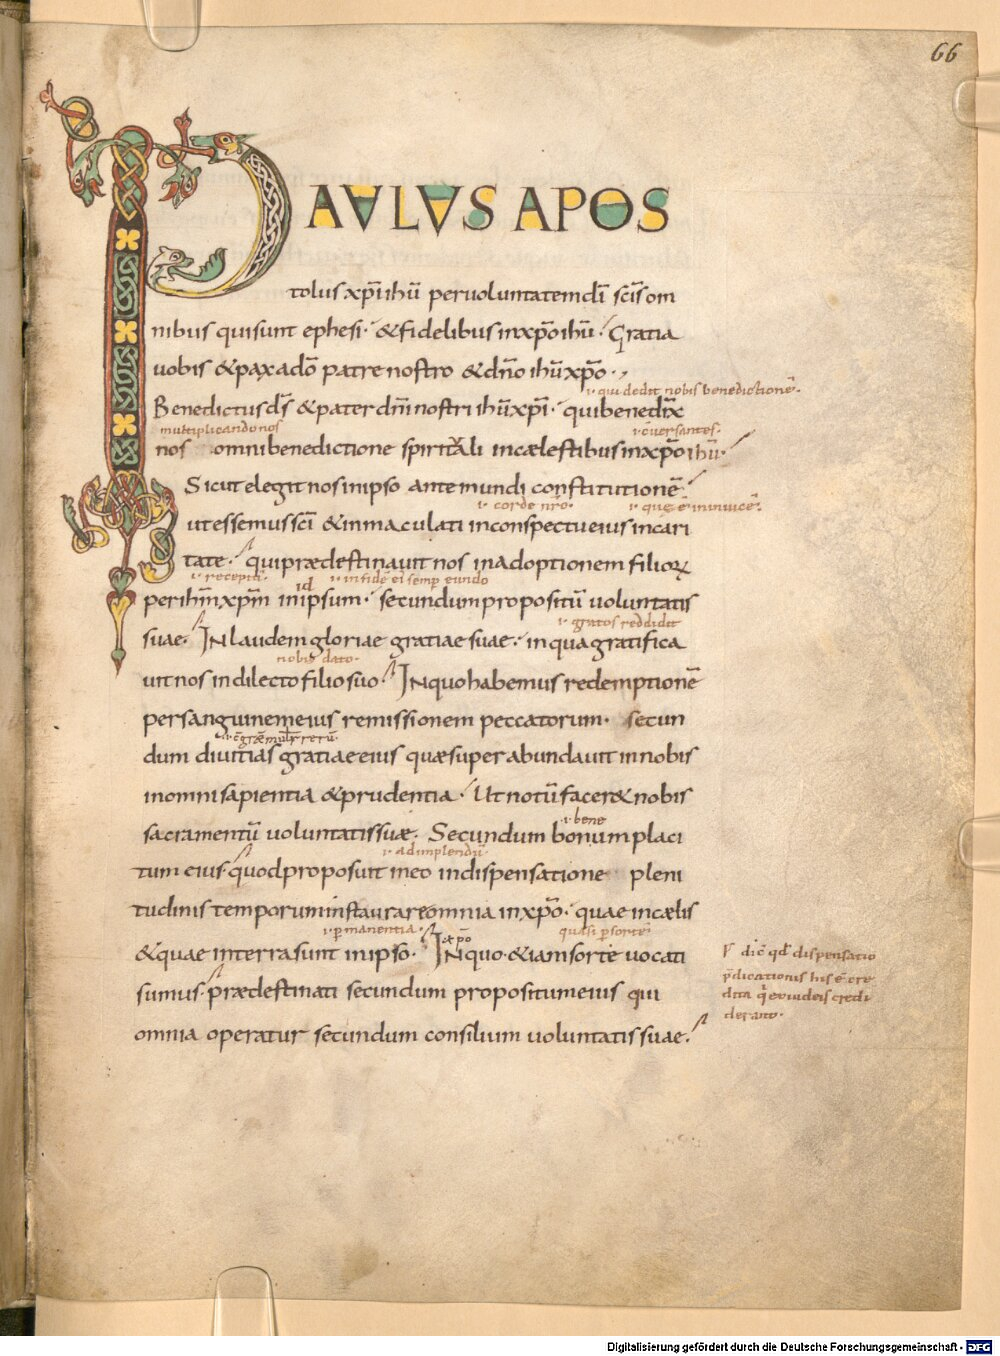 66
PAVLVS APOS
tolus xp̄i ihū per uoluntatem dī sc̄is om
nibus qui sunt ephesi· & fidelibus in xp̄o ihū· Gratia
uobis & pax a dō patre nostro & dn̄o ihū xp̄o·
·i· qui dedit nobis benedictionē·
Benedictus ds̄ & pater dn̄i nostri ihū xp̄i· qui benedix̄
multiplicando nos ·i· c̄uersantes·
nos omni benedictione spiritali in cælestibus in xp̄o ihū·
Sicut elegit nos in ipso ante mundi constitutionē·
·i· corde nr̄o·
ut essemus sc̄i & inmaculati in conspectu eius in cari
tate· qui prædestinauit nos in adoptionem filioꝝ
·i· recepti· ·i· in fide ei semꝑ eundo
per ihm̄ xp̄m in id ipsum· secundum propositū uoluntatis
·i· gratos reddidit
suae· In laudem gloriae gratiae suae· in qua gratifica
nobis dato·
uit nos in dilecto filio suo· In quo habemus redemptionē
per sanguinem eius remissionem peccatorum· secun
dum diuitias gratiae eius quæ superabundauit in nobis
in omni sapientia & prudentia· Ut notū facer& nobis
·i· bene
sacramentū uoluntatis suæ· Secundum bonum placi
·i· adimplendū·
tum eius· quod proposuit in eo in dispensatione pleni
tudinis temporum instaurare omnia in xp̄o· quae in cælis
·i· ꝑmanentia· quasi ꝑ sortē·
& quae in terra sunt in ipso· xp̄o In quo & iam sorte uocati
sumus· prædestinati secundum propositum eius qui
omnia operatur secundum consilium uoluntatis suae·
dic̄ qd̄ dispensatio
p̄dicationis his ē cre
dita q̄ ex iudeis credi
derant·
Digitalisierung gefördert durch die Deutsche Forschungsgemeinschaft - DFG